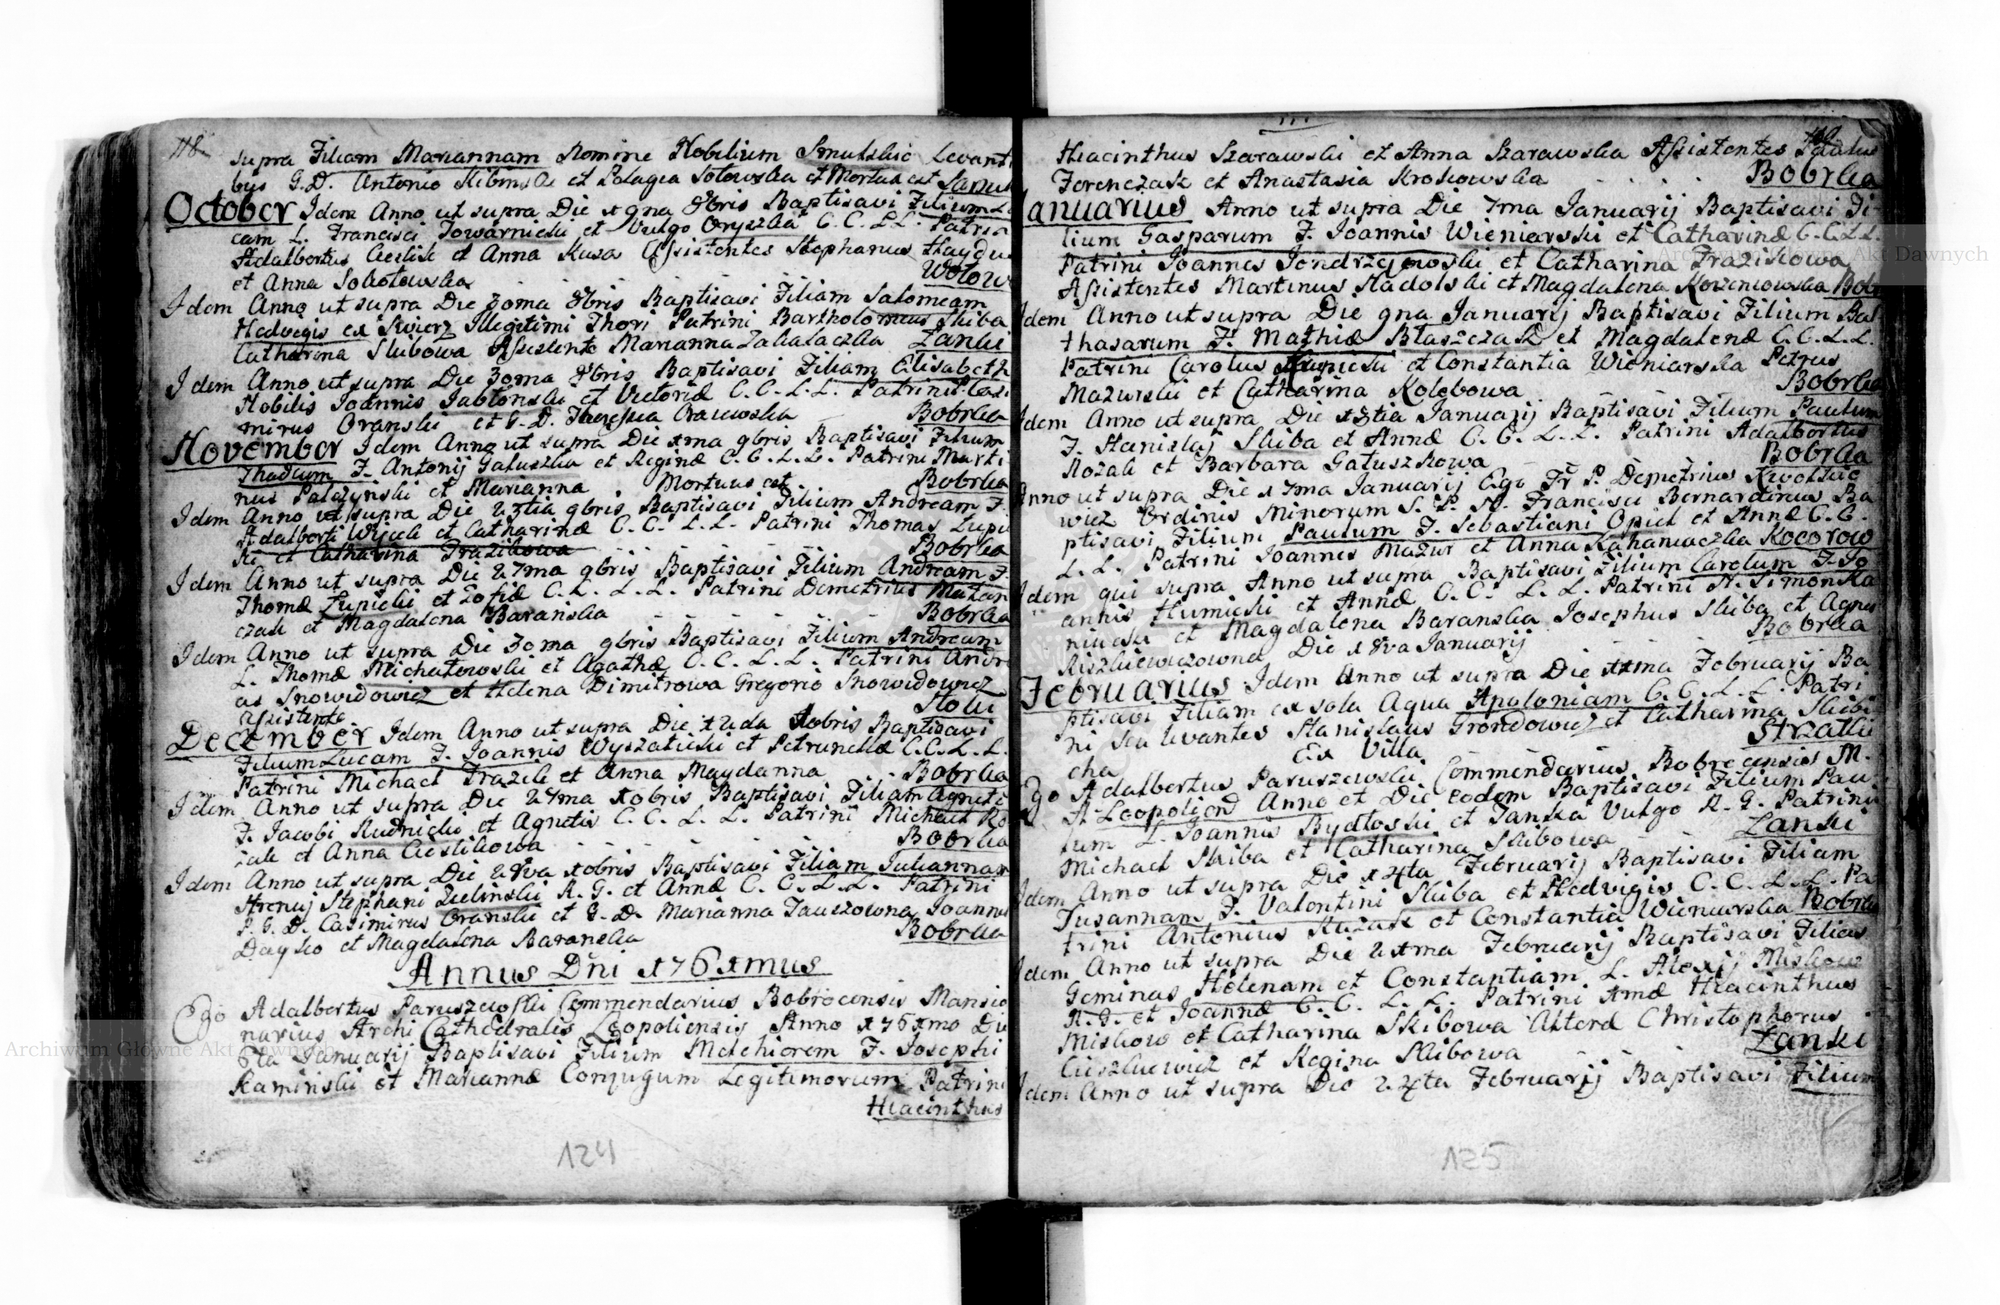 118
supra Filiam Mariannam Nomine Nobilium Smulskie Levanti
bus G.D. Antonio et Pelagia Sotowska et Mortua est
October Idem Anno ut supra Die 19na 8bris Baptisavi Filium Lu
cam L. Francisci Towarnicki et Vulgo Oryszka C.C.LL. Patrin
Adalbertus Cieslik et Anna Kusa Assistentes Stephanus Hayduk
et Anna Sokotowska Wotow
Idem Anno ut supra Die 30ma 8bris Baptisavi Filiam Salomeam
Hedvegis ex Swierz Illegitimi Thori Patrini Bartholomeus Skiba
Catharina Skibowa Assistente Marianna Zahalaczka Lanki
Idem Anno ut supra Die 30ma 8bris Baptisavi Filiam Elisabeth
Nobilis Joannis Jabtonski et Victoriæ C.C.L.L. Patrini Casi
mirus Oranski et G.D. Theressia Oraiewska Bobrka
November Idem Anno ut supra Die 1ma 9bris Baptisavi Filium
Thadeum F. Antonij Gatuszka et Reginæ C.C.L.L. Patrini Marti
nus Patczynski et Marianna Mortuus est Bobrka
Idem Anno ut supra Die 23tia 9bris Baptisavi Filium Andream F.
Adalberti Wyicik et Catharinæ C.C.L.L. Patrini Thomas Lupic
ki et Catharina Frazikowa Bobrka
Idem Anno ut supra Die 27ma 9bris Baptisavi Filium Andream F.
Thomæ Lupicki et Zofiæ C.C.L.L. Patrini Demetrius Matan
czak et Magdalena Baranska Bobrka
Idem Anno ut supra Die 30ma 9bris Baptisavi Filium Andream
L. Thomæ Michatowski et Agathæ C.C.L.L. Patrini Andre
as Snowidowicz et Helena Dimitrowa Gregorio Snowidowicz
assistente Stoki
December Idem Anno ut supra Die 12da Xbris Baptisavi
Filium Lucam F. Joannis Wyszaticki et Petrunellæ C.C.L.L.
Patrini Michael Frazik et Anna Maydanna Bobrka
Idem Anno ut supra Die 27ma Xbris Baptisavi Filiam Agneti
F. Jacobi Rudnicki et Agnetis C.C.L.L. Patrini Michael Ro
zak et Anna Cieslikowa Bobrka
Idem Anno ut supra Die 28va Xbris Baptisavi Filiam Juliannam
Strenuj Stephani Zielinski R.G. et Annæ C.C.L.L. Patrini
P.G.D. Casimirus Oranski et G.D. Marianna Jauszowna Joannes
Daysko et Magdalena Baranska Bobrka
Annus Dni 1761mus
Ego Adalbertus Paruszewski Commendarius Bobrocensis Mansio
narius Archi Cathedralis Leopoliensis Anno 1761mo Die
6ta Januarij Baptisavi Filium Melchiorem F. Josephi
Kaminski et Mariannæ Conjugum Legitimorum Patrini
Hiacinthus
124
Hiacinthus Szarawski et Anna Szarawska Assistentes Paulus
Ferenczak et Anastasia Krokowska Bobrka
Januarius Anno ut supra Die 7ma Januarij Baptisavi Fi-
lium Gasparum F. Joannis Wieniarski et Catharinæ C.C.L.L.
Patrini Joannes Jendrzejowski et Catharina Frazikowa
Assistentes Martinus Nadolski et Magdalena Korzeniowska Bobr
Idem Anno ut supra Die 9na Januarij Baptisavi Filium Bal-
thasarum F. Mathiæ Btaszczak et Magdalenæ C.C.L.L.
Patrini Carolus Krupicki et Constantia Wieniarska Petrus
Mazurski et Catharina Kolebowa Bobrka
Idem Anno ut supra Die 13tia Januarij Baptisavi Filium Paulum
F. Stanislaj Skiba et Annæ C.C.L.L. Patrini Adalbertus
Rozak et Barbara Gatuszkowa Bobrka
Anno ut supra Die 17ma Januarij Ego Fr P. Demetrius
wicz Ordinis Minorum S.P.N. Francisci Bernardinus Ba
ptisavi Filium Paulum F. Sebastiani Opiel et Annæ C.C.
L.L. Patrini Joannes Mazur et Anna Kahaniaczka Kocorow
Idem qui supra Anno ut supra Baptisavi Filium Carolum F. Jo
annis Humicki et Annæ C.C.L.L. Patrini N. Simonka
niuosi et Magdalena Baranska Josephus Skiba et Agnes
Kiszkiewiczowna Die 18va Januarij Bobrka
Februarius Idem Anno ut supra Die 11ma Februarij Ba
ptisavi Filiam ex sola Aqua Apoloniam C.C.L.L. Patri
ni seu levantes Stanislaus Grondowicz et Catharina Skibi
cha Ex Villa Strzatki
Ego Adalbertus Paruszewski Commendarius Bobrocensis M.
A. Leopoliens Anno et Die eodem Baptisavi Filium Pau
lum L. Joannis Bydtoski et Janka Vulgo R.G. Patrini
Michael Skiba et Catharina Skibowa Lanki
Idem Anno ut supra Die 14ta Februarij Baptisavi Filiam
Susannam F. Valentini Skiba et Hedvigis C.C.L.L. Pa
trini Antonius Kuzak et Constantia Wieniarska Bobrka
Idem Anno ut supra Die 21ma Februarij Baptisavi Filias
Geminas Helenam et Constantiam L. Alexij Miskow
R.G. et Joannæ C.C.L.L. Patrini 1mæ Hiacinthus
Miskow et Catharina Skibowa Alteræ Christophorus
Cieszkiewicz et Regina Skibowa Lanki
Idem Anno ut supra Die 24ta Februarij Baptisavi Filium
125
Archiwum Główne Akt Dawnych
Akt Dawnych